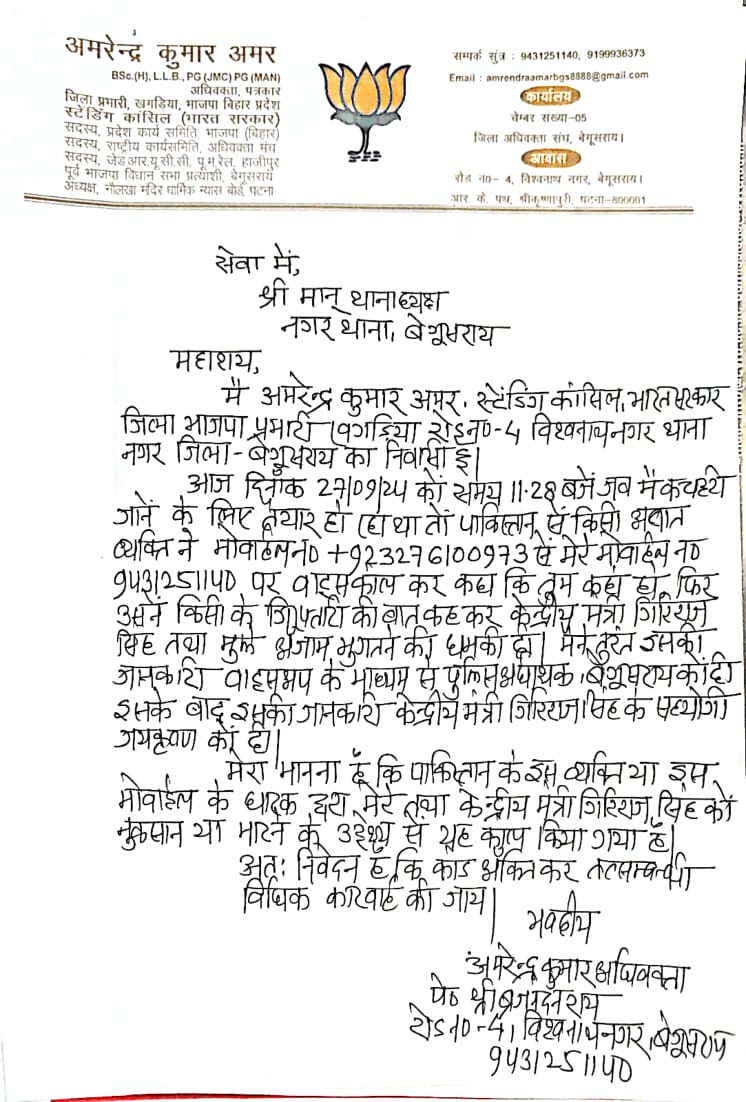 अमरेन्द्र कुमार अमर
BSc.(H), L.L.B., PG (JMC) PG (MAN)
अधिवक्ता, पत्रकार
जिला प्रभारी, खगड़िया, भाजपा बिहार प्रदेश
स्टेंडिंग कांसिल (भारत सरकार)
सदस्य, प्रदेश कार्य समिति, भाजपा (बिहार)
सदस्य, राष्ट्रीय कार्यसमिति, अधिवक्ता मंच
सदस्य, जेड.आर.यू.सी.सी, पू.म.रेल, हाजीपुर
पूर्व भाजपा विधान सभा प्रत्याशी, बेगूसराय
अध्यक्ष, नौलखा मंदिर धार्मिक न्यास बोर्ड, पटना
सम्पर्क सुंत्र : 9431251140, 9199936373
Email : amrendraamarbgs8888@gmail.com
कार्यालय
चेम्बर संख्या-05
जिला अधिवक्ता संघ, बेगूसराय।
आवास
रोड न०- 4, विश्वनाथ नगर, बेगूसराय।
आर. के. पथ, श्रीकृष्णापुरी, पटना-800001
सेवा में,
श्री मान् थानाध्यक्ष
नगर थाना, बेगूसराय
महाशय,
मै अमरेन्द्र कुमार अमर, स्टेंडिंग कांसिल, भारत सरकार
जिला भाजपा प्रभारी खगड़िया रोड न०-4 विश्वनाथ नगर थाना
नगर जिला- बेगूसराय का निवासी हूँ।
आज दिनाँक 27/09/24 को समय 11.28 बजे जब मै कचहरी
जाने के लिए तैयार हो रहा था तो पाकिस्तान से किसी अज्ञात
व्यक्ति ने मोवाईल न० +923276100973 से मेरे मोवाईल न०
9431251140 पर वाइसकॉल कर कहा कि तुम कहा हो, फिर
उसने किसी के गिरफ्तारी की बात कह कर केन्द्रीय मंत्री गिरिराज
सिंह तथा मुझे अंजाम भुगतने की धमकी दी। मैने तुरंत इसकी
जानकारी वाट्सअप के माध्यम से पुलिस अधीक्षक, बेगूसराय को दी
इसके बाद इसकी जानकारी केन्द्रीय मंत्री गिरिराज सिंह के सहयोगी
जयकृष्ण को दी।
मेरा मानना है कि पाकिस्तान के इस व्यक्ति या इस
मोवाईल के धारक द्वारा मेरे तथा केन्द्रीय मंत्री गिरिराज सिंह को
नुकसान या मारने के उद्देश्य से यह काम किया गया है।
अतः निवेदन है कि कांड अंकित कर तत्सम्बन्धी
विधिक कारवाई की जाय।
भवदीय
अमरेन्द्र कुमार अधिवक्ता
पे० श्री
रोड न०-4, विश्वनाथ नगर, बेगूसराय
9431251140